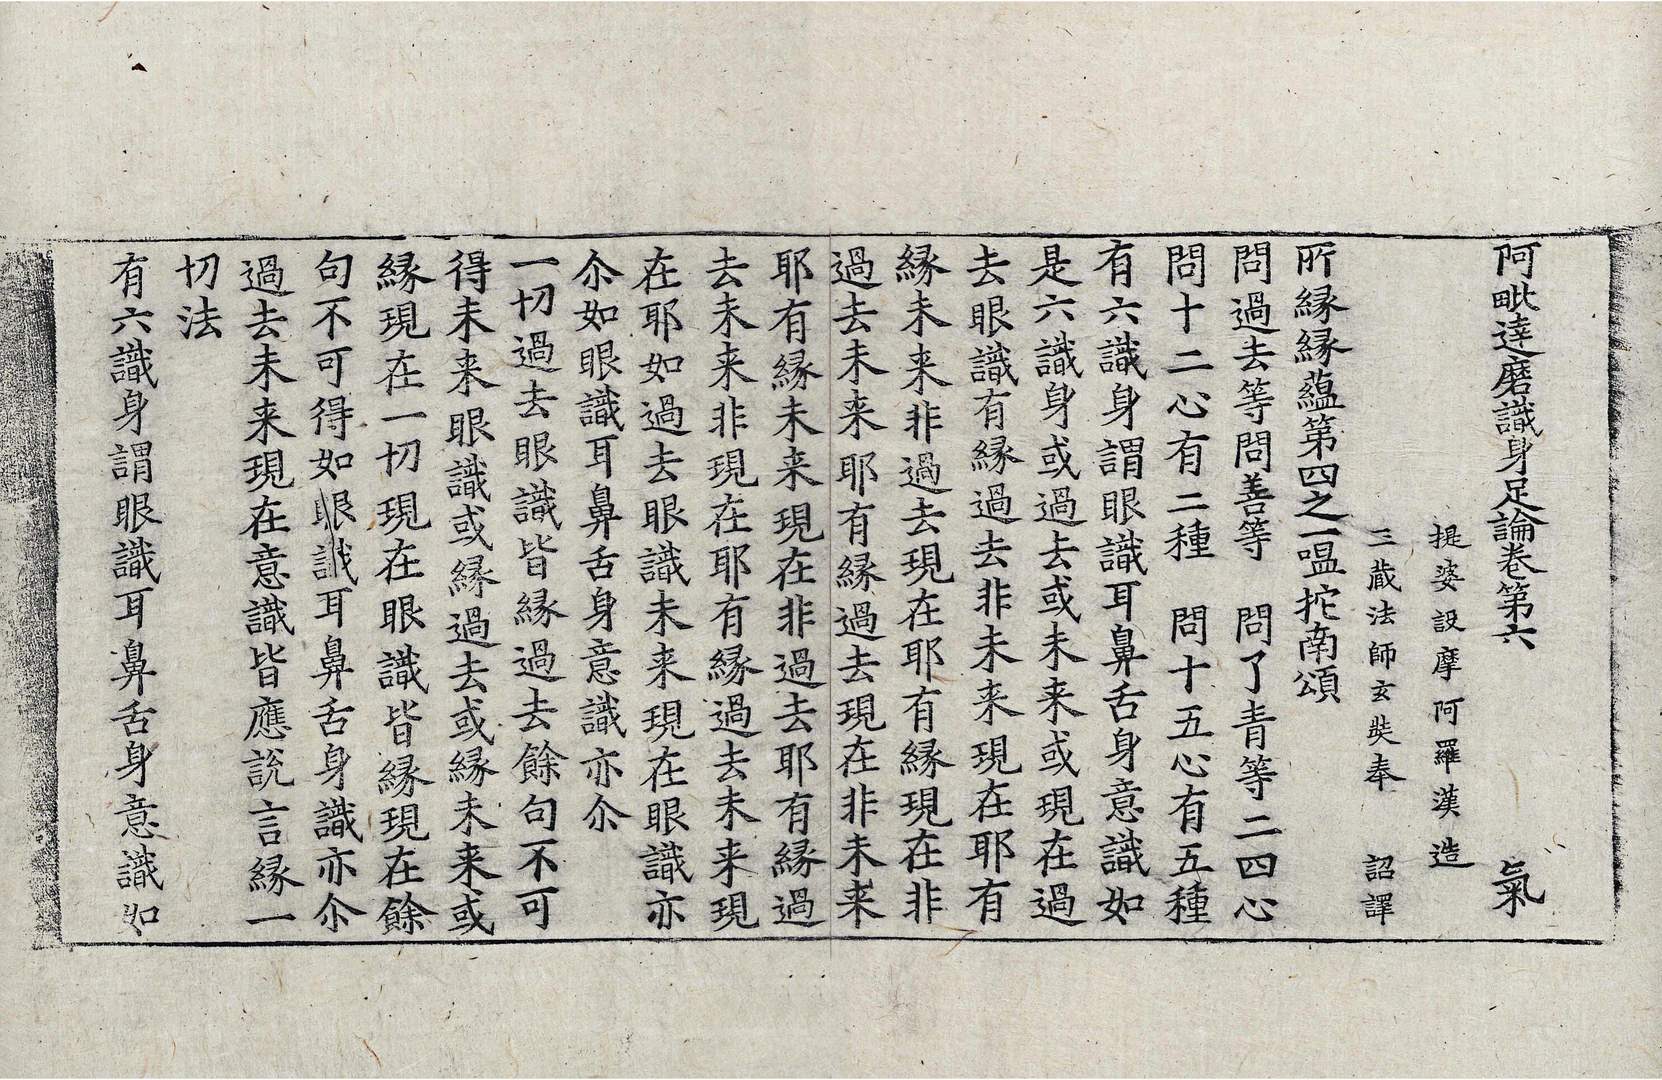 阿毗達磨識身足論卷第六 氣
提婆設摩阿羅漢造
三藏法師玄奘奉 詔譯
所緣緣蘊第四之一嗢拕南頌
問過去等問善等 問了青等二四心
問十二心有二種 問十五心有五種
有六識身謂眼識耳鼻舌身意識如
是六識身或過去或未来或現在過
去眼識有緣過去非未来現在耶有
緣未来非過去現在耶有緣現在非
過去未来耶有緣過去現在非未来
耶有緣未来現在非過去耶有緣過
去未来非現在耶有緣過去未来現
在耶如過去眼識未来現在眼識亦
尒如眼識耳鼻舌身意識亦尒
一切過去眼識皆緣過去餘句不可
得未来眼識或緣過去或緣未来或
緣現在一切現在眼識皆緣現在餘
句不可得如眼識耳鼻舌身識亦尒
過去未来現在意識皆應說言緣一
切法
有六識身謂眼識耳鼻舌身意識如